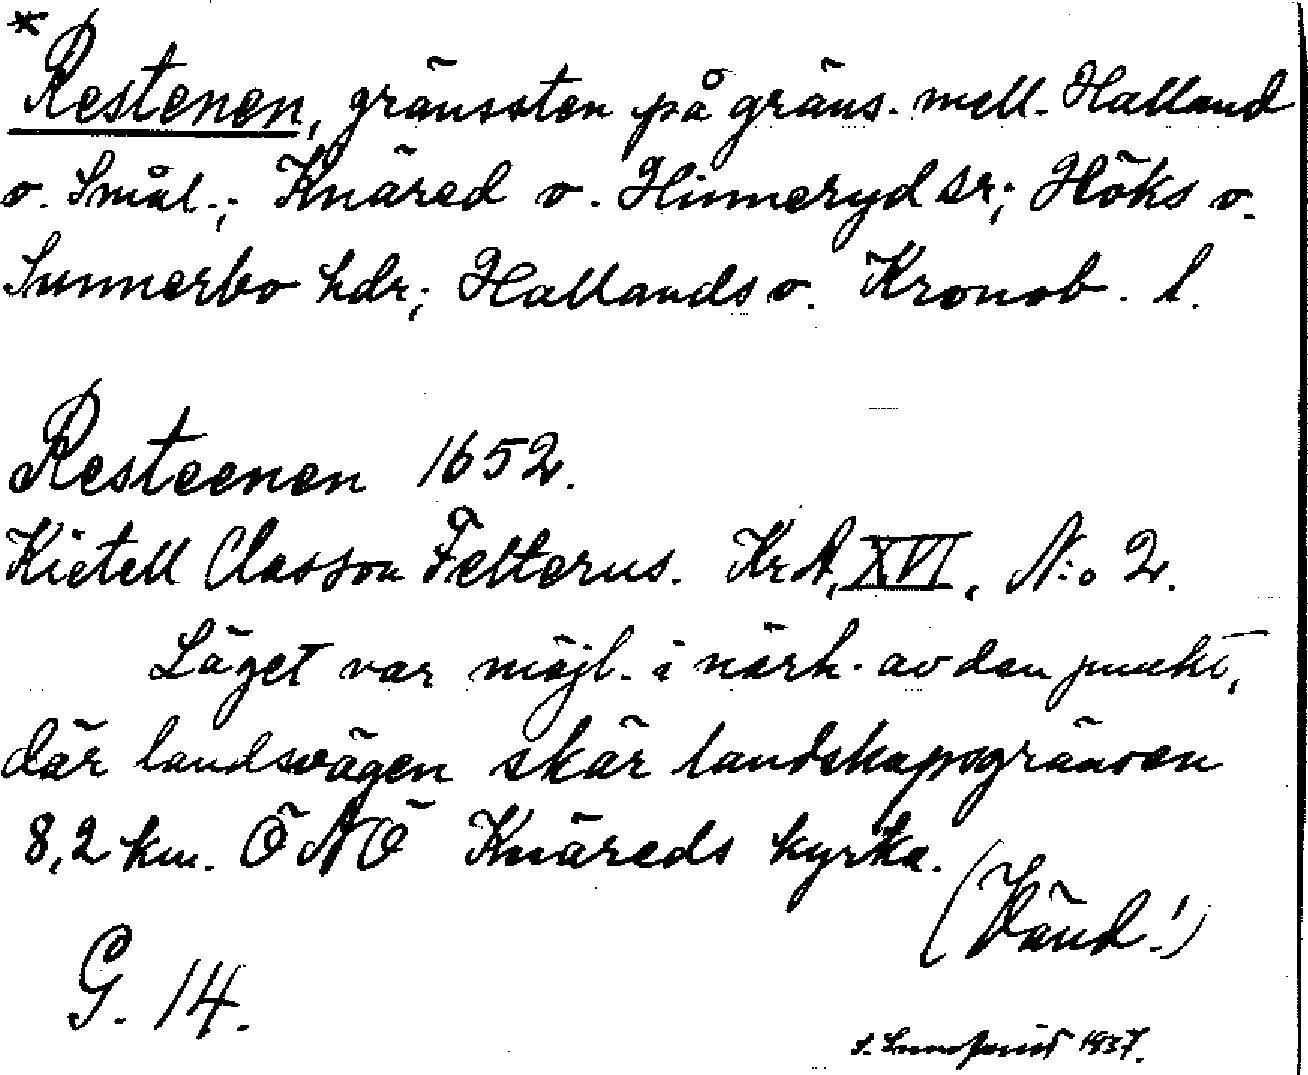 *
Restenen, gränssten på gräns. mell. Halland
o. Smål.; Knäred o. Hinneryd sr; Höks o.
Sunnerbo hdr; Hallands o. Kronob. l.
Resteenen 1652.
Kietell Classon Felterus. KrA, XVI, N:o 2.
Läget var möjl. i närh. av den punkt,
där landsvägen skär landskapsgränsen
8,2 km. ÖNÖ Knäreds kyrka.
(Vänd!)
G. 14.
S. 1937.